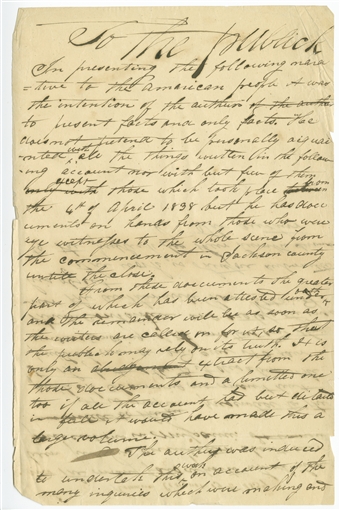 To The Publick
In presenting the following narra
=tive to the American people it was
the intention of the author of the author
to present facts and only facts. He
does not pretend to be personally aquai
=nted with all the things written in the follow
=ing account nor with but few of them
only with except those which took place from
the 6th of April 1838 but he has docu
=ments on hands from those who were
eye witnesses to the whole scene from
the commencement in Jackson county
untill the close.
From these documents the greater
part of which has been attested under oath
and the remainder will be as soon as
the writers are called on for it, so that
the public may rely on its truth. It is
only an extract from the
those documents and a limited one
too if all the account had but the facts
in full it would have made this a
large volume.
The author was induced
to undertake this such an account of the
many inquiries which were making and